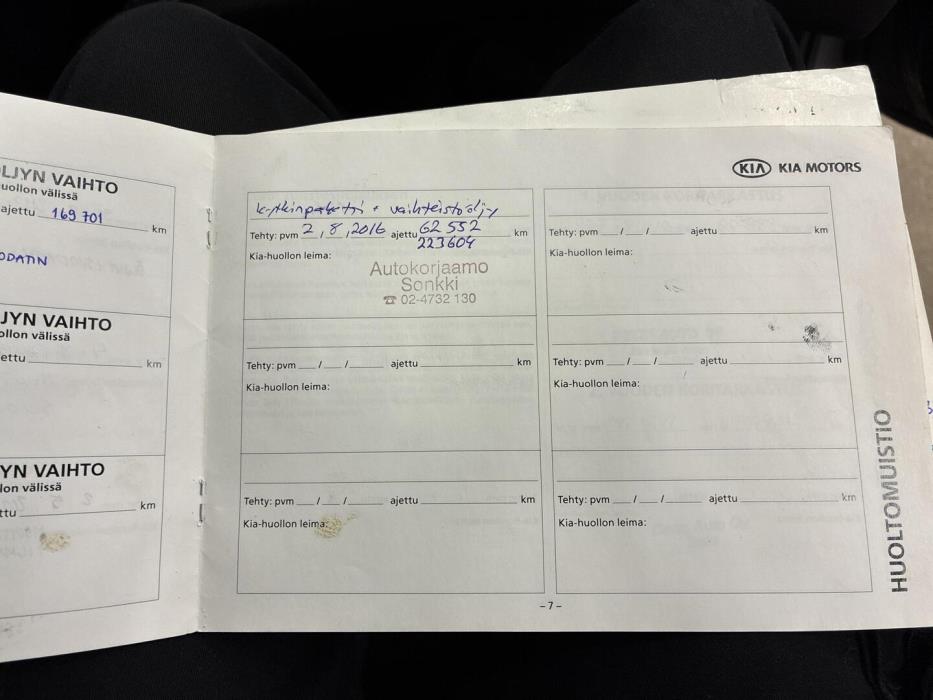 LJYN VAIHTO
uollon välissä
ajettu 169 701 km
ODATIN
JYN VAIHTO
ollon välissä
ettu km
YN VAIHTO
lon välissä
ttu km
KIA KIA MOTORS
kytkinpaketti + vaihteistoöljy
Tehty: pvm 2 / 8 / 2016 ajettu 62 552 km
223604
Kia-huollon leima:
Autokorjaamo
Sonkki
☎ 02-4732 130
Tehty: pvm / / ajettu km
Kia-huollon leima:
Tehty: pvm / / ajettu km
Kia-huollon leima:
Tehty: pvm / / ajettu km
Kia-huollon leima:
Tehty: pvm / / ajettu km
Kia-huollon leima:
Tehty: pvm / / ajettu km
Kia-huollon leima:
HUOLTOMUISTIO
– 7 –